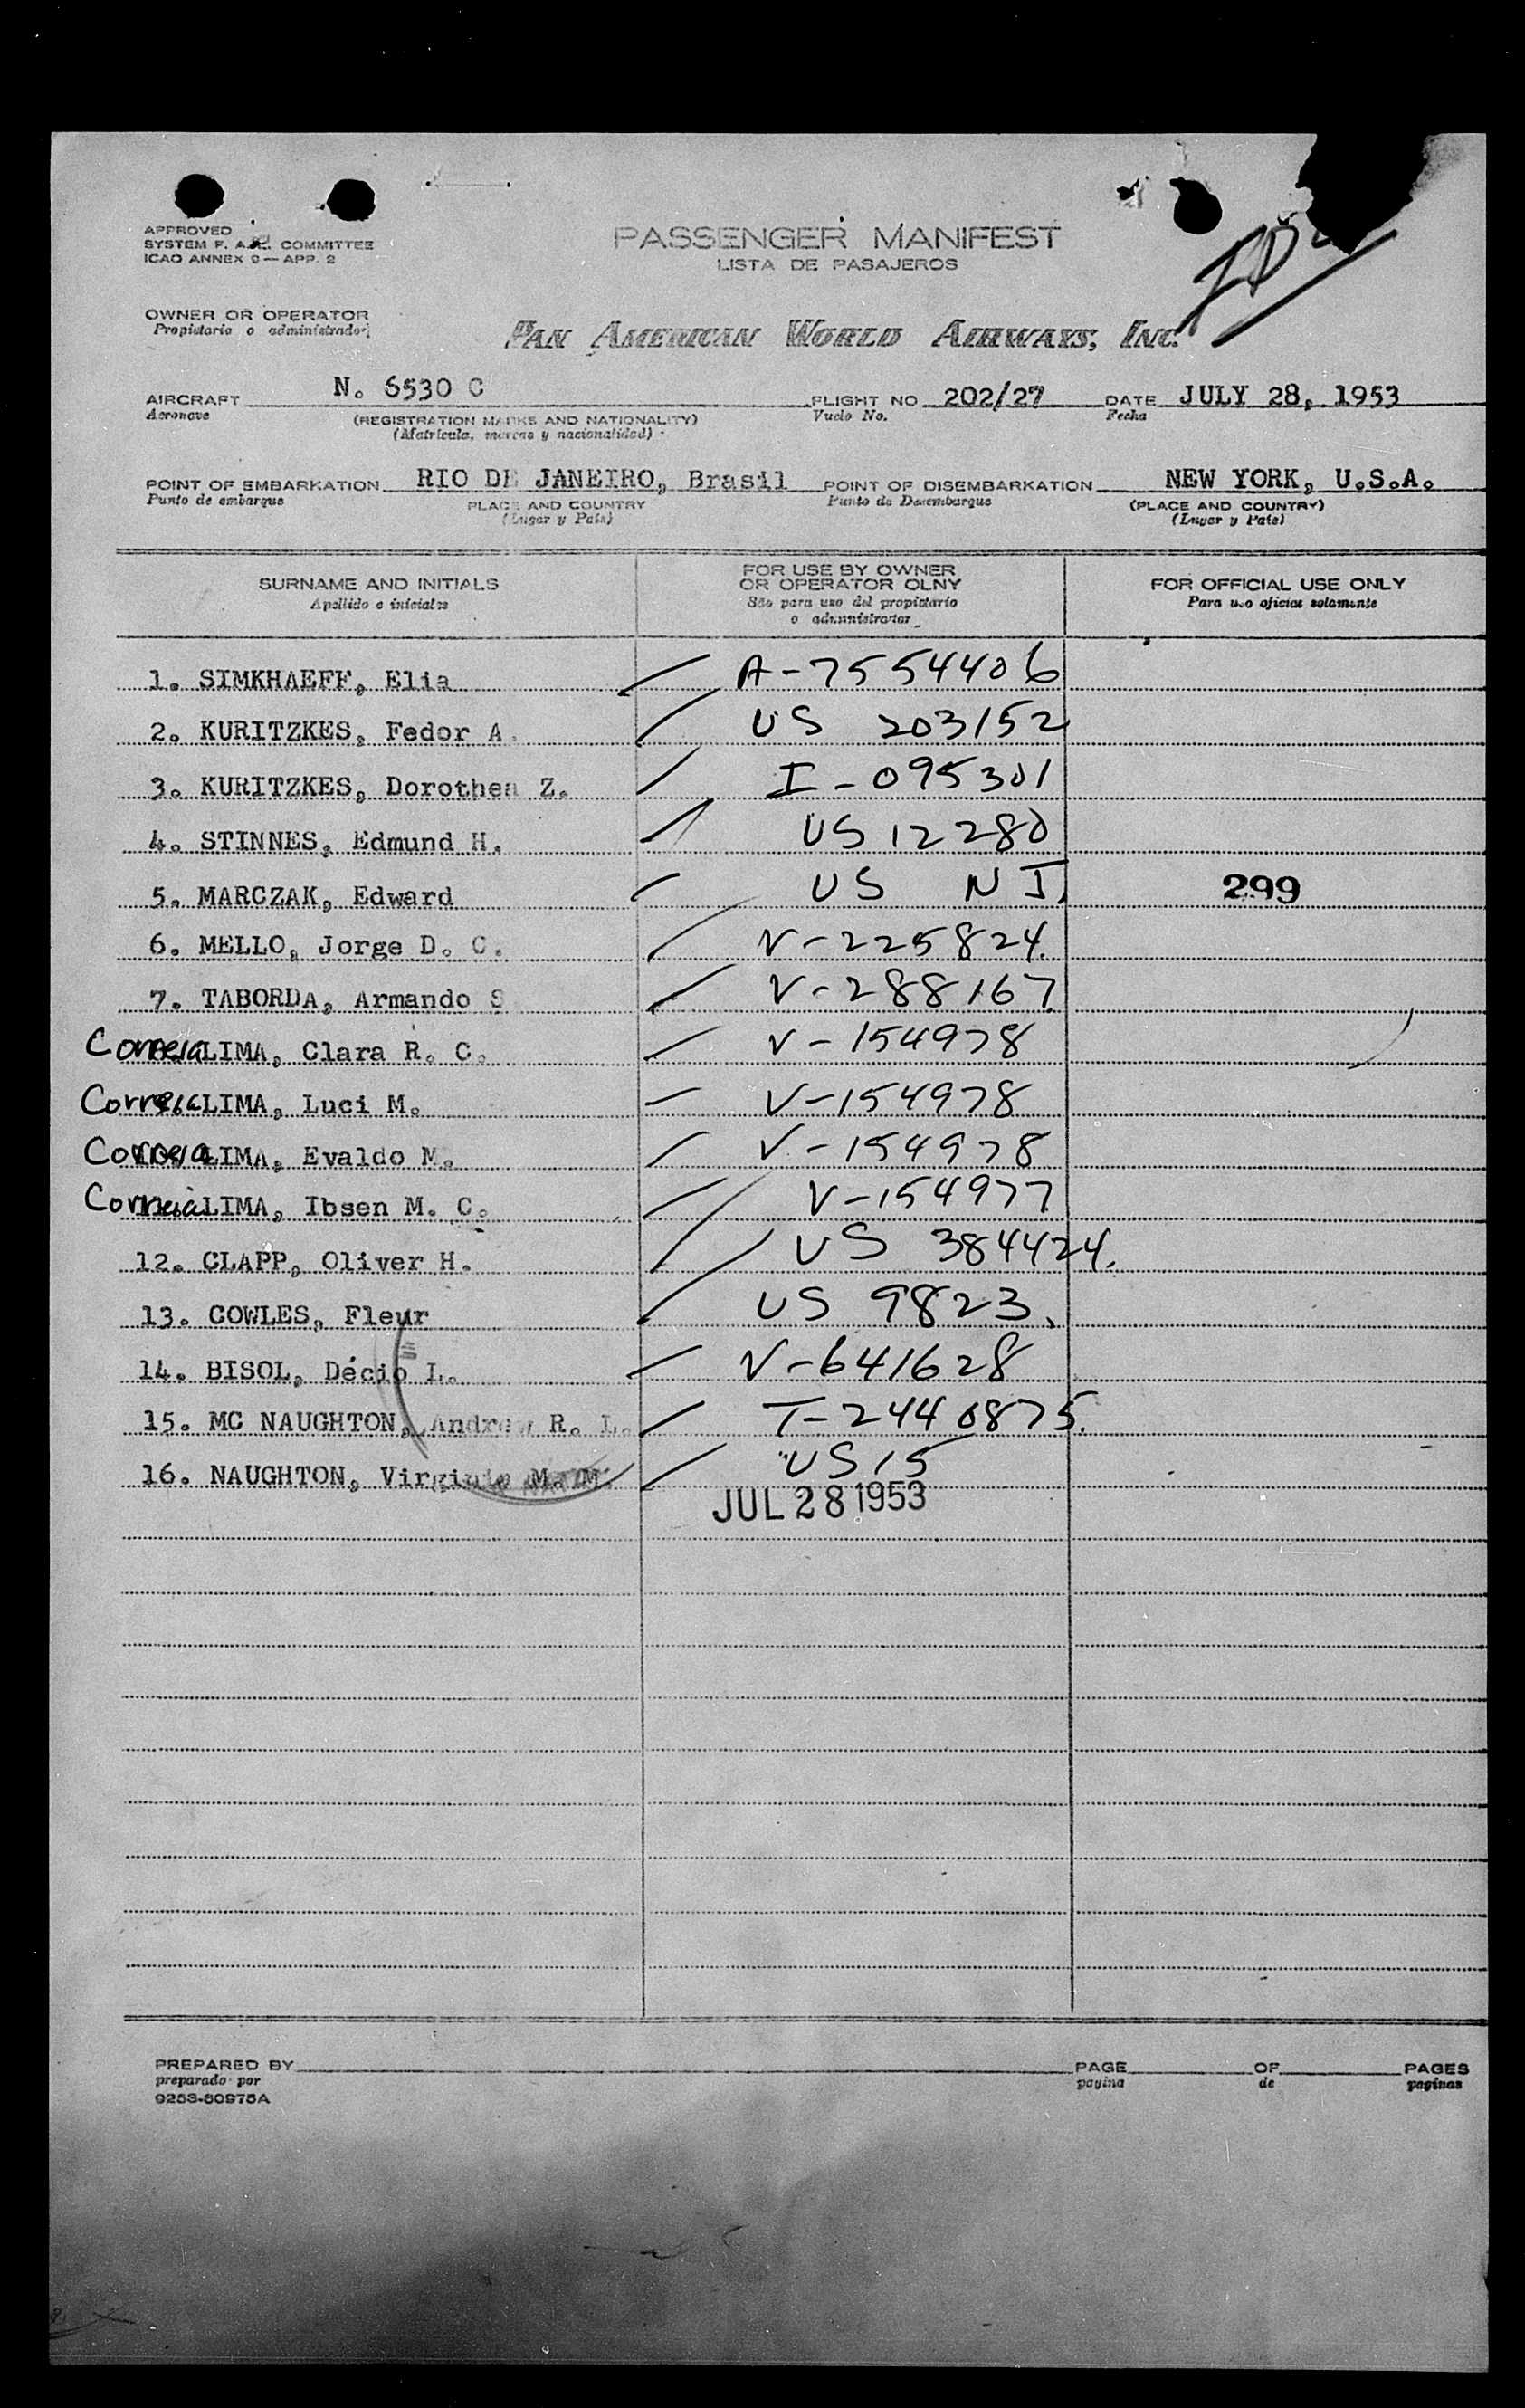 APPROVED
SYSTEM F. A. COMMITTEE
ICAO ANNEX 9 — APP. 2
PASSENGER MANIFEST
LISTA DE PASAJEROS
OWNER OR OPERATOR
Propietario o administrador
PAN AMERICAN WORLD AIRWAYS, INC.
AIRCRAFT N. 6530 C FLIGHT NO 202/27 DATE JULY 28, 1953
Aeronave (REGISTRATION MARKS AND NATIONALITY) Vuelo No. Fecha
(Matricula, marcas y nacionalidad)
POINT OF EMBARKATION RIO DE JANEIRO, Brasil POINT OF DISEMBARKATION NEW YORK, U.S.A.
Punto de embarque PLACE AND COUNTRY Punto de Desembarque (PLACE AND COUNTRY)
(Lugar y País) (Lugar y País)
SURNAME AND INITIALS FOR USE BY OWNER OR OPERATOR OLNY FOR OFFICIAL USE ONLY
Apellido e iniciales Sôo para uso del propietario o administrador Para uso oficial solamente
1. SIMKHAEFF, Elia A-7554406
2. KURITZKES, Fedor A. US 203152
3. KURITZKES, Dorothea Z. I-095301
4. STINNES, Edmund H. US 12280
5. MARCZAK, Edward US NJ. 299
6. MELLO, Jorge D. C. V-225824.
7. TABORDA, Armando S V-288167
Correia LIMA, Clara R. C. V-154978
Correia LIMA, Luci M. V-154978
Correia LIMA, Evaldo M. V-154978
Correia LIMA, Ibsen M. C. V-154977
12. CLAPP, Oliver H. US 384424.
13. COWLES, Fleur US 9823.
14. BISOL, Décio L. V-641628
15. MC NAUGHTON, Andrew R. L. T-2440875.
16. NAUGHTON, Virginia M. M US 15
JUL 28 1953
PREPARED BY PAGE OF PAGES
preparado por pagina de paginas
0253-60975A